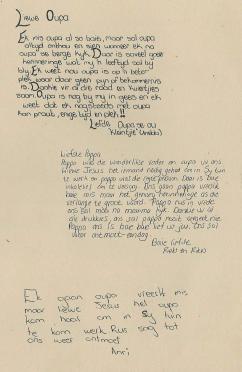 Liewe Oupa
Ek mis oupa al so baie, maar sal oupa
altyd onthou en sien wanneer ek na
oupa se berge kyk. Daar is soveel goeie
herinneringe wat my 'n leeftyd sal by
bly. Ek weet nou oupa is op 'n beter
plek waar daar geen pyn of bekommernis
is. Dankie vir al die raad en
saam. Oupa is nog by my in gees en ek
weet dat ek nogsteeds met oupa
kan praat, enige tyd en plek!!
Liefde Oupa se ou
Kleintjie
Liefste Pappa
Pappa was die wonderlikste vader en oupa vir ons
Liewe Jesus het iemand nodig gehad om in Sy tuin
te werk en pappa was die regte persoon. Daar is baie
om te versorg. Ons gaan pappa verskriklik
baie mis maar met genoeg herinneringe as die
verlange te groot word. Pappa rus in vrede
ons sal mooi na mamma kyk. Dankie vir al
die drukkies, ons sal pappa nooit vergeet nie.
Pappa ons is baie baie lief vir jou. Ons sal
weer ontmoet eendag.
Baie liefde
Ek opan oupa vreeslik mis
maar liewe Jesus het oupa
kom haal om in Sy tuin
te kom werk Rus sag tot
ons weer ontmoet
Anri